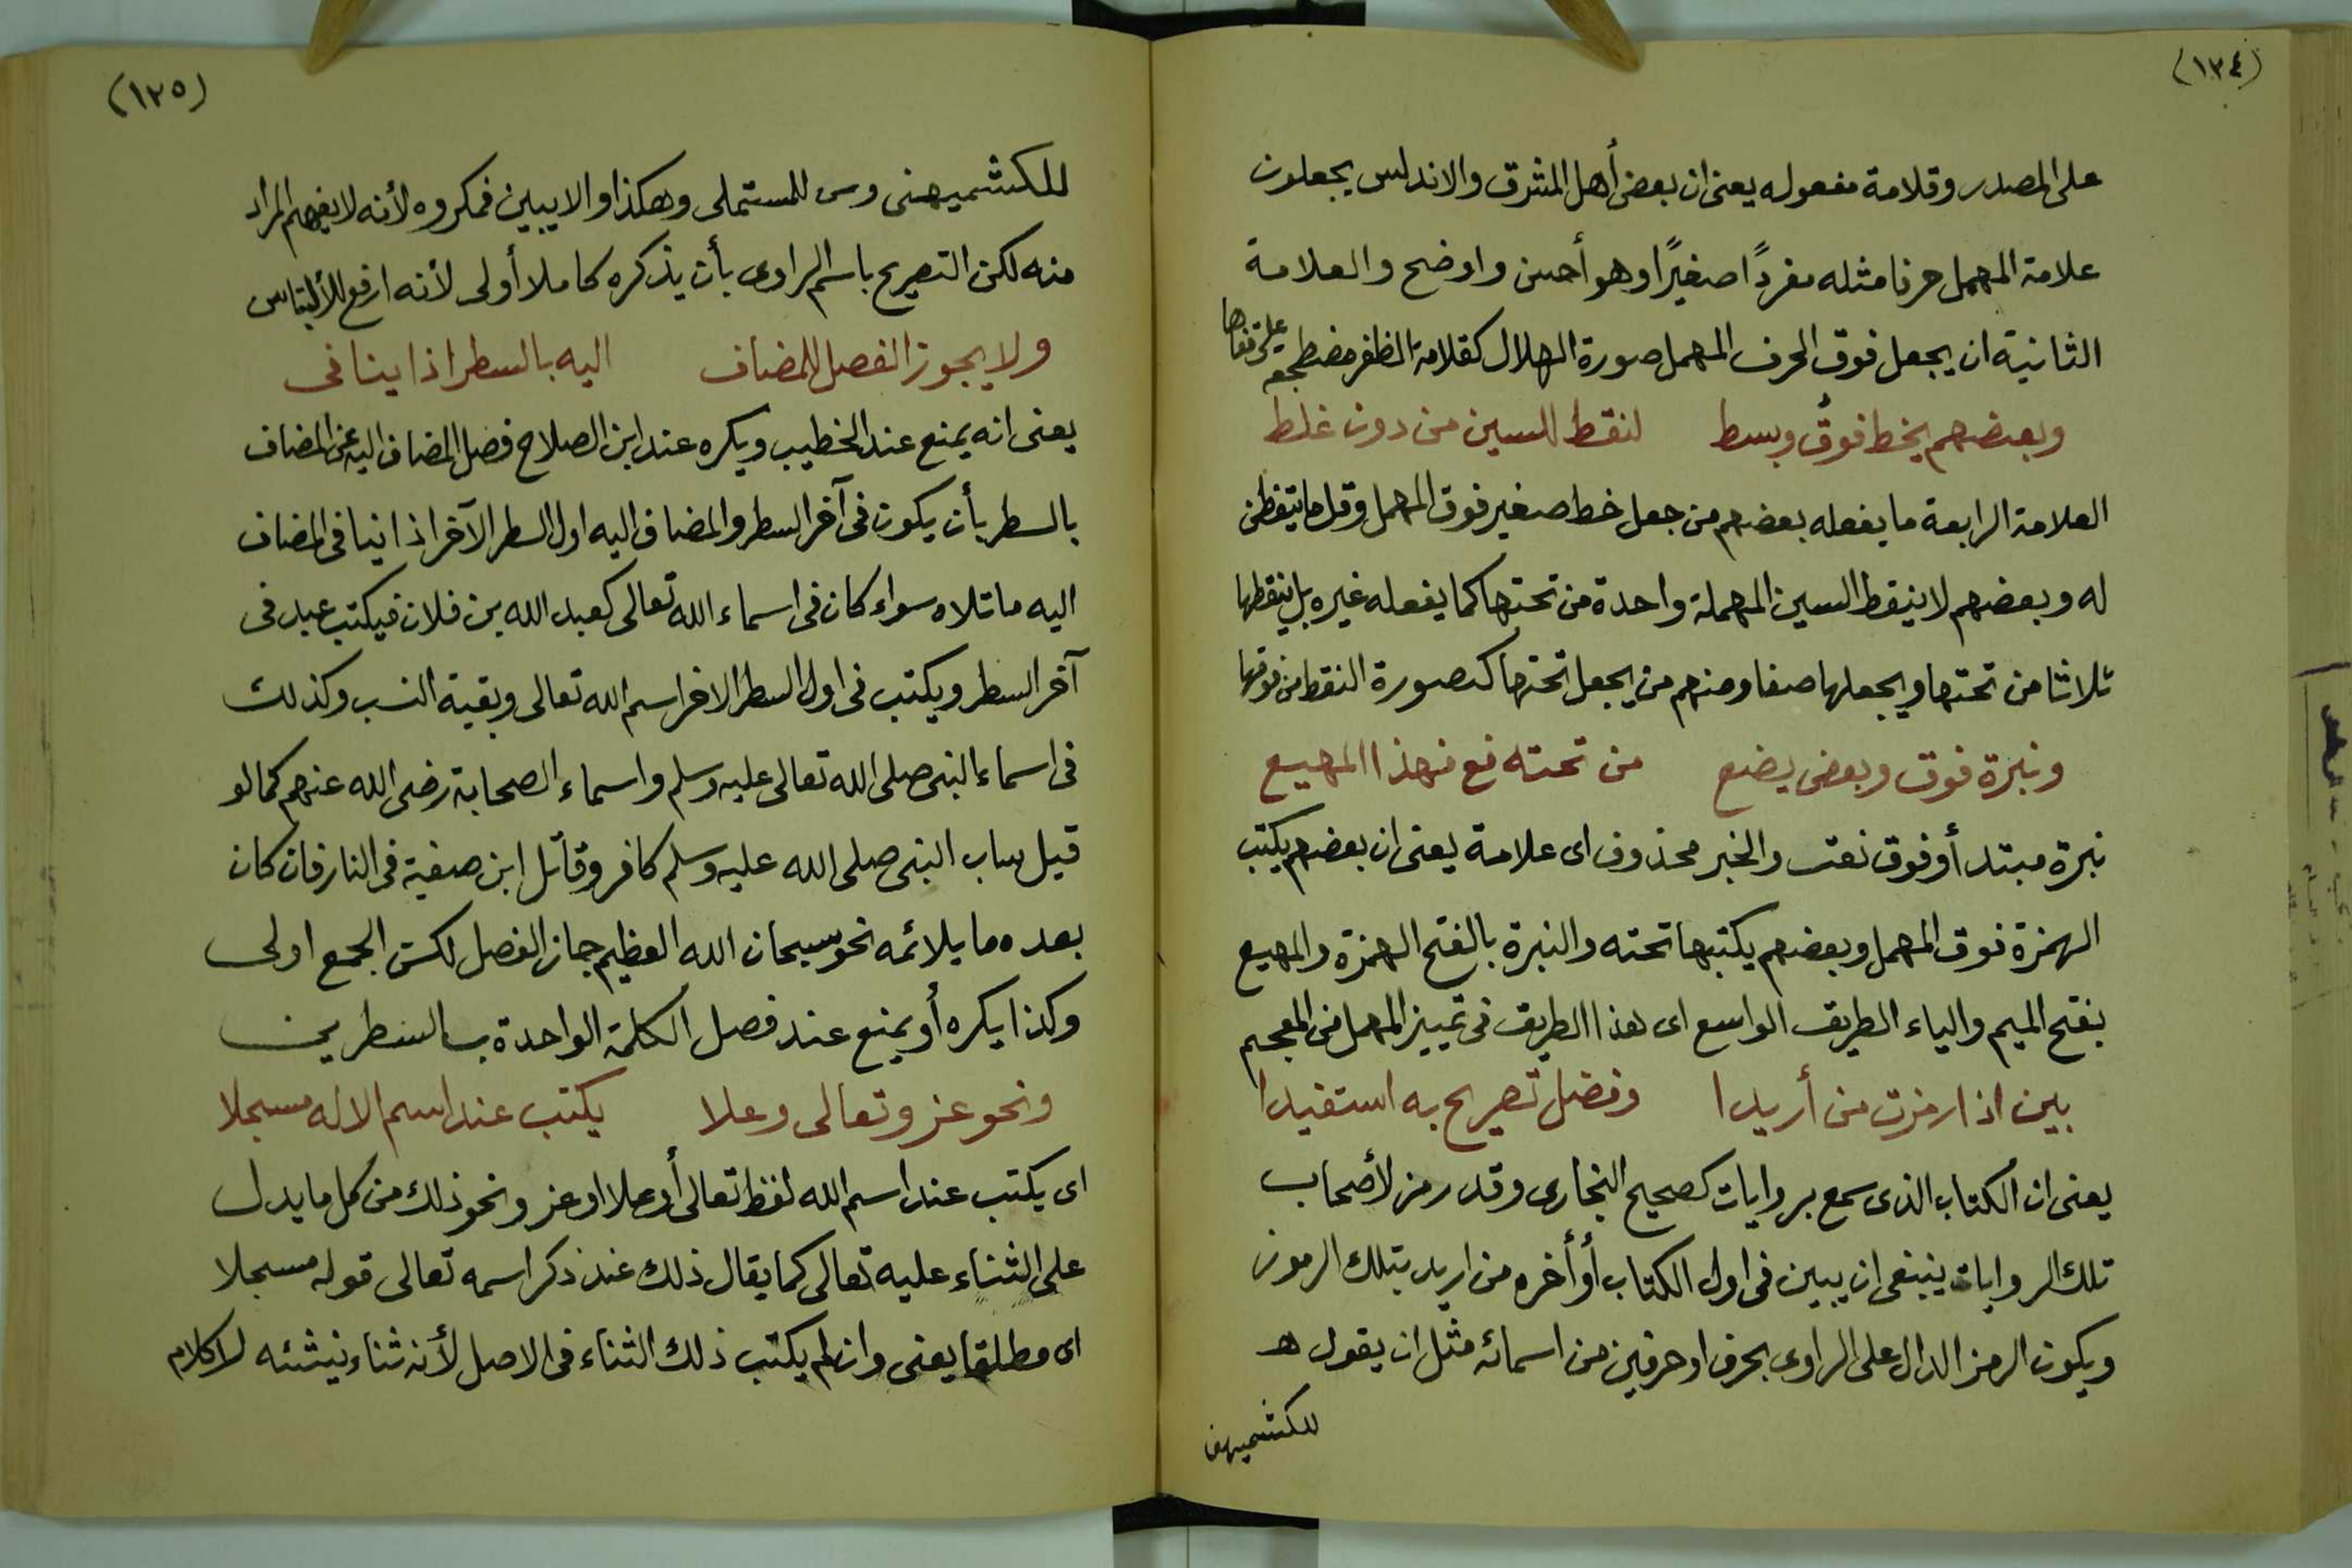 (١٣٤)
على المصدر وقلامة مفعوله يعنى ان بعض أهل المشرق والاندلس يجعلون
علامة المهمل حرفا مثله مفردًا صغيرًا وهو أحسن واوضح والعلامة
الثانية ان يجعل فوق الحرف المهمل صورة الهلال كقلامة الظفر مضطجعة على قفاها
وبعضهم يخط فوقُ وبسط لنقط للسين من دون غلط
العلامة الرابعة ما يفعله بعضهم من جعل خط صغير فوق المهمل وقل ما يتفطن
له وبعضهم لا ينقط السين المهملة واحدة من تحتها كما يفعله غيره بل ينقطها
ثلاثا من تحتها ويجعلها صفا ومنهم من يجعل تحتها كصورة النقط من فوقها
ونبرة فوق وبعض يضع من تحته فع فهذا المهيع
نبرة مبتدأ وفوق نعت والخبر محذوف اى علامة يعنى ان بعضهم يكتب
الهمزة فوق المهمل وبعضهم يكتبها تحته والنبرة بالفتح الهمزة والمهيع
بفتح الميم والياء الطريق الواسع اى هذا الطريق فى تمييز المهمل من المعجم
بين اذا رمزت من أريدا وفضل تصريح به استفيدا
يعنى ان الكتاب الذى سمع بروايات كصحيح البخارى وقد رمز لأصحاب
تلك الروايات ينبغى ان يبين فى اول الكتاب أو أخره من اريد بتلك الرموز
ويكون الرمز الدال على الراوى بحرف او حرفين من اسمائه مثل ان يقول هـ
للكشميهنى
(١٣٥)
للكشميهنى وس للمستملى وهكذا والا يبين فمكروه لأنه لا يفهم المراد
منه لكن التصريح باسم الراوى بأن يذكره كاملا أولى لأنه ارفع للألتباس
ولا يجوز الفصل للمضاف اليه بالسطر اذا ينافى
يعنى انه يمنع عند الخطيب ويكره عند ابن الصلاح فصل المضاف اليه عن المضاف
بالسطر بأن يكون فى آخر السطر والمضاف اليه اول السطر الآخر اذا ينافى المضاف
اليه ما تلاه سواء كان فى اسماء الله تعالى كعبد الله بن فلان فيكتب عبد فى
آخر السطر ويكتب فى اول السطر الاخر اسم الله تعالى وبقية النسب وكذلك
فى اسماء النبى صلى الله تعالى عليه وسلم واسماء الصحابة رضى الله عنهم كما لو
قيل ساب النبى صلى الله عليه وسلم كافر وقاتل ابن صفية فى النار فان كان
بعده ما يلائمه نحو سبحان الله العظيم جاز الفصل لكن الجمع اولى
وكذا يكره أو يمنع عند فصل الكلمة الواحدة بالسطرين
ونحو عز وتعالى وعلا يكتب عند اسم الاله مسجلا
اى يكتب عند اسم الله لفظ تعالى أو علا او عز ونحو ذلك من كل ما يدل
على الثناء عليه تعالى كما يقال ذلك عند ذكر اسمه تعالى قوله مسجلا
اى مطلقا يعنى وان لم يكتب ذلك الثناء فى الاصل لأنه ثناء ينشئه لا كلام